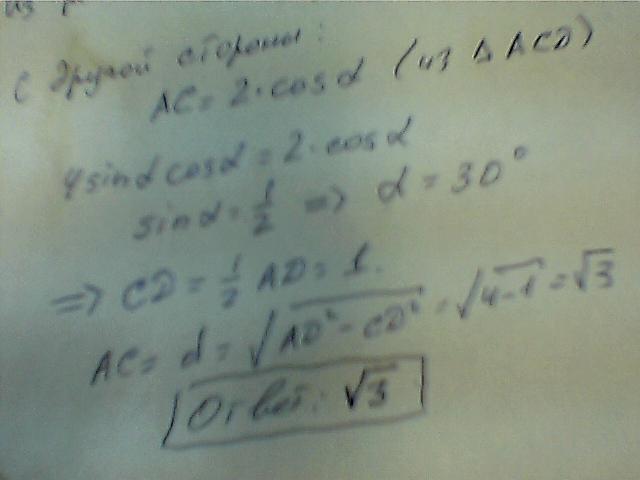 из
С другой стороны:
AC = 2·cosα (из Δ ACD)
4sinαcosα = 2·cosα
sinα = 1/2 => α = 30°
=> CD = 1/2 AD = 1.
AC = d = √(AD² - CD²) = √(4-1) = √3
Ответ: √3